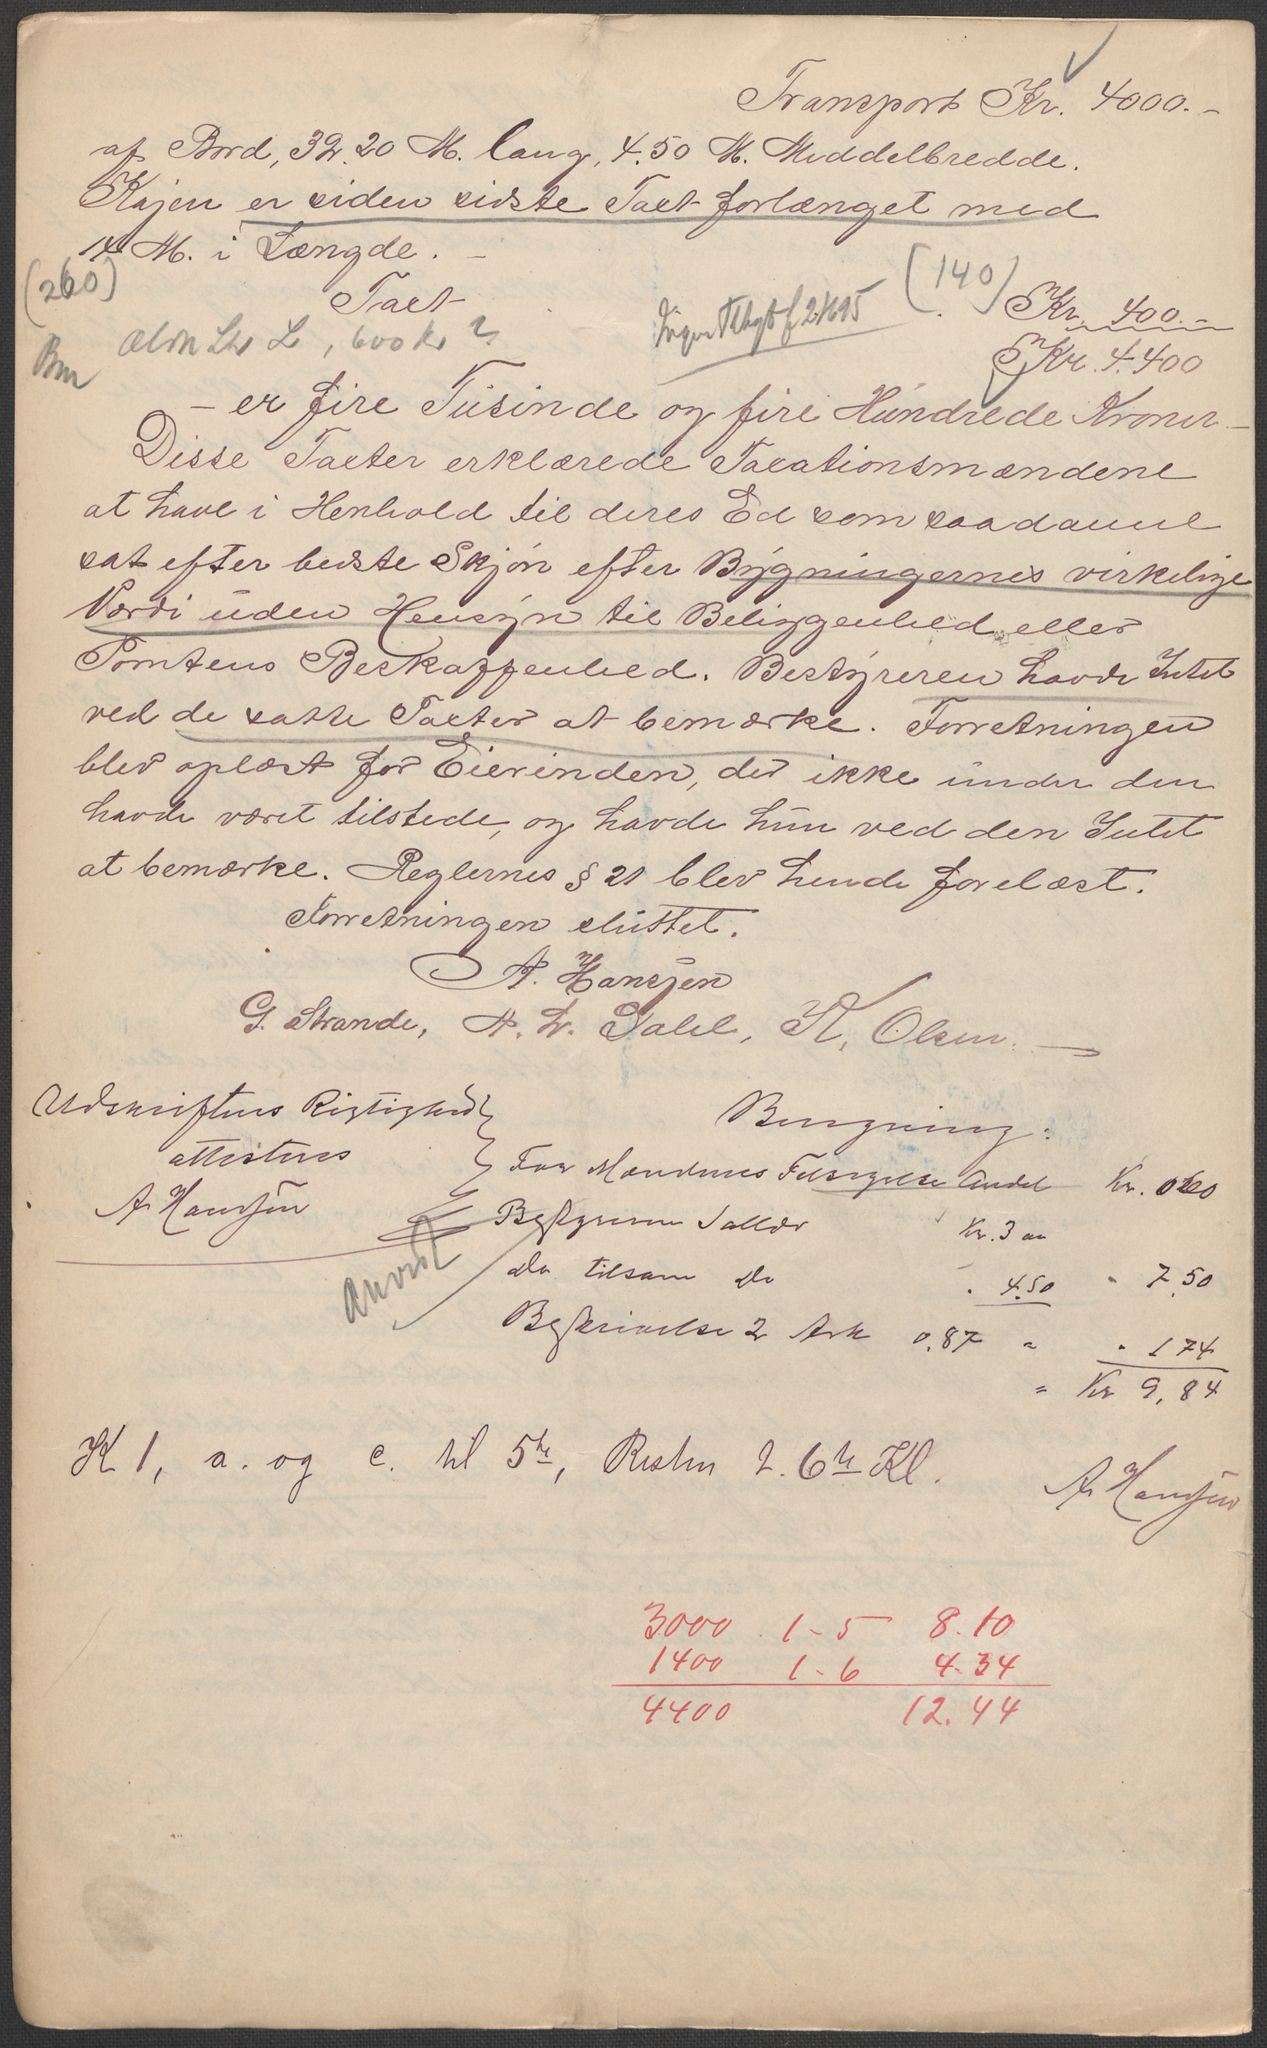 Transport Kr. 4000.-
af Bord, 32.20 M. lang, 4.50 M. Middelbredde.
Kajen er siden sidste Taxt forlænget med
14 M. i Længde. -
(260) Taxt (140) Kr. 400.-
600 Kr ?
Kr. 4.400
- er fire Tusinde og fire Hundrede Kroner. -
Disse Taxter erklærede Taxationsmændene
at have i Henhold til deres Ed som saadanne
sat efter bedste Skjøn efter Bygningernes virkelige
Værdi uden Hensyn til Beliggenhed eller
Tomtens Beskaffenhed. Bestyreren havde Intet
ved de satte Taxter at bemærke. Forretningen
blev oplæst for Eierinden, der ikke under den
havde været tilstede, og havde hun ved den Intet
at bemærke. Reglernes § 21 blev hende forelæst.
Forretningen sluttet.
A. Hansjen
G. Strande, A. Lr. Dahl, K. Olsen.
Udskriftens Rigtighed
attesteres
A Hansjen
Anvist
Beregning:
For Mændenes Tilsigelse Andel Kr. 0.60
Bestyrerens Sallær Kr. 3 00
do tilsam do " 4.50 " 7.50
Beskrivelse 2 Ark 0.87 " " 1 74
= Kr 9,84
A Hansjen
K 1, a. og c. til 5te, Resten t. 6te Kl.
3000 1-5 8.10
1400 1-6 4.34
4400 12.44